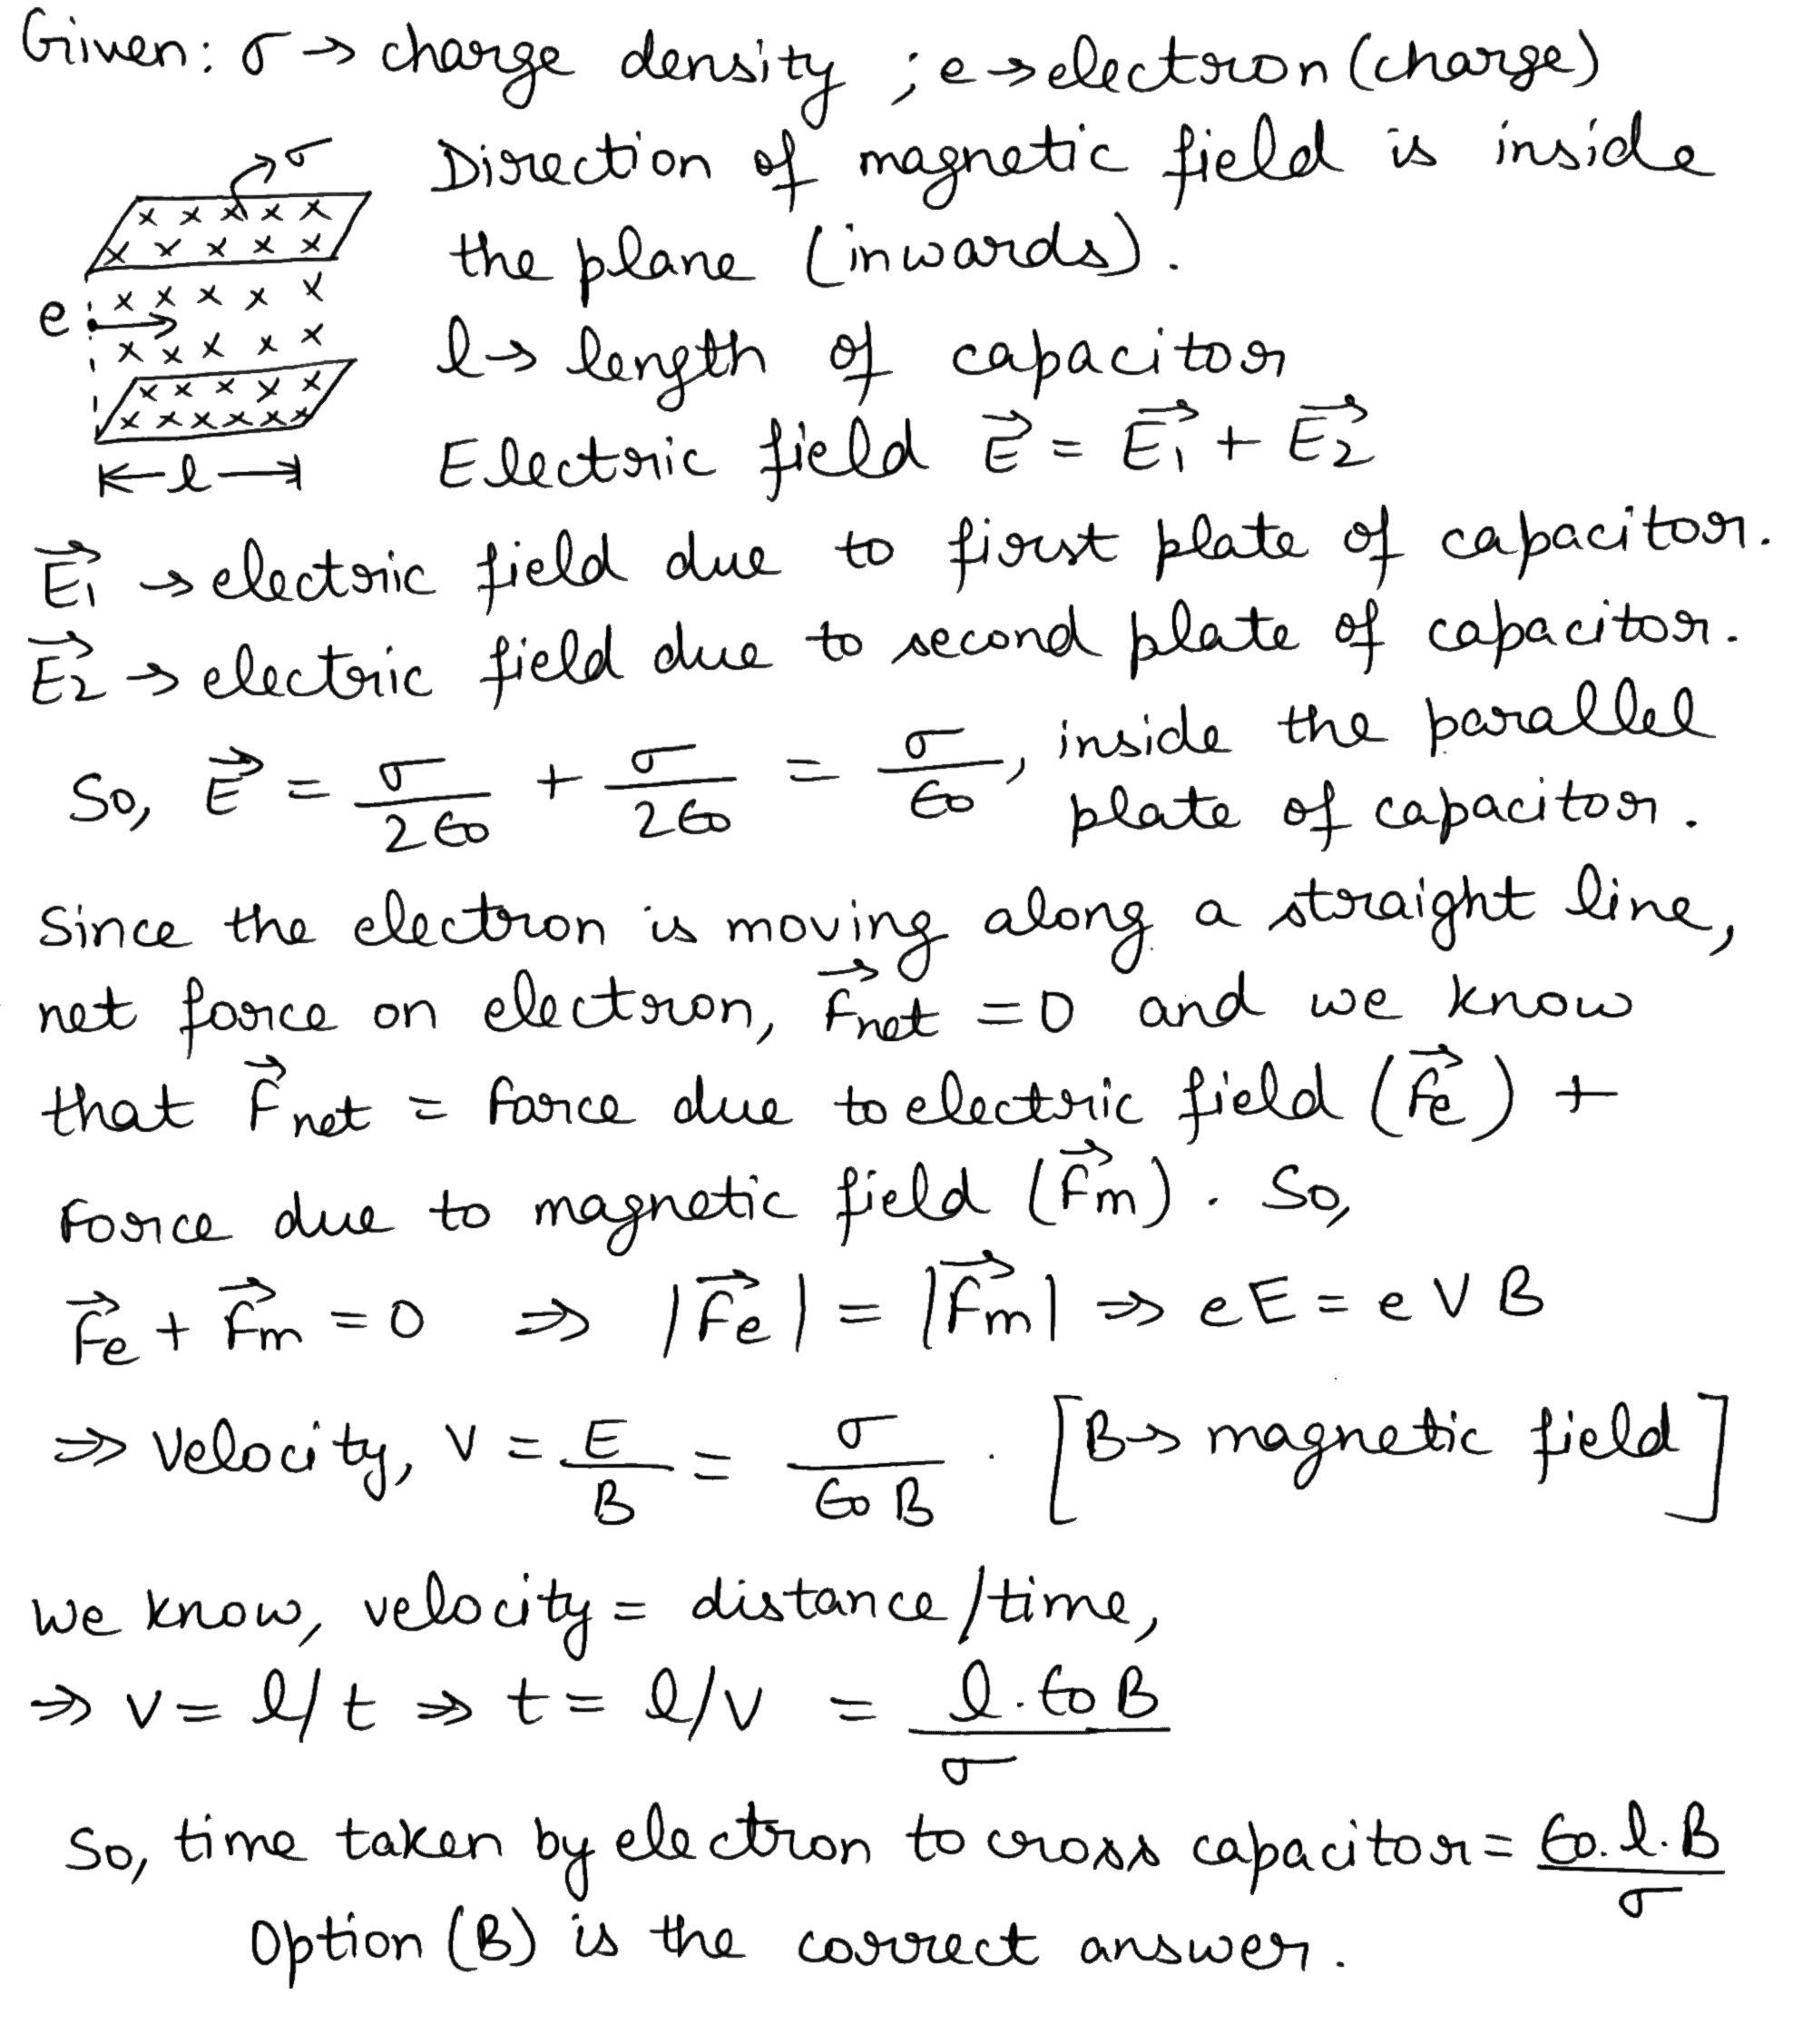 Given: σ → charge density ; e → electron (charge)
σ
Direction of magnetic field is inside
the plane (inwards).
e
l → length of capacitor
l
Electric field E⃗ = E⃗₁ + E⃗₂
E⃗₁ → electric field due to first plate of capacitor.
E⃗₂ → electric field due to second plate of capacitor.
So, E⃗ = σ/2ε₀ + σ/2ε₀ = σ/ε₀, inside the parallel
plate of capacitor.
Since the electron is moving along a straight line,
net force on electron, F⃗net = 0 and we know
that F⃗net = force due to electric field (F⃗e) +
Force due to magnetic field (F⃗m). So,
F⃗e + F⃗m = 0 ⇒ |F⃗e| = |F⃗m| ⇒ eE = eVB
⇒ Velocity, V = E/B = σ/ε₀B . [B → magnetic field]
We know, velocity = distance/time,
⇒ V = l/t ⇒ t = l/V = l.ε₀B/σ
So, time taken by electron to cross capacitor = ε₀.l.B/σ
Option (B) is the correct answer.